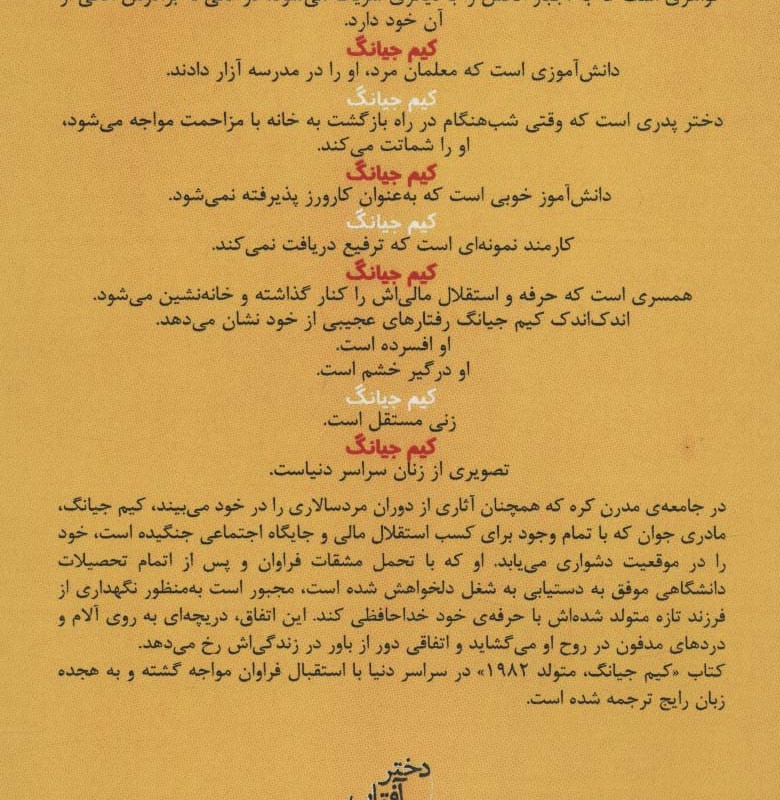 آن خود دارد.
کیم جیانگ
دانش‌آموزی است که معلمان مرد، او را در مدرسه آزار دادند.
کیم جیانگ
دختر پدری است که وقتی شب‌هنگام در راه بازگشت به خانه با مزاحمت مواجه می‌شود،
او را شماتت می‌کند.
کیم جیانگ
دانش‌آموز خوبی است که به‌عنوان کارورز پذیرفته نمی‌شود.
کیم جیانگ
کارمند نمونه‌ای است که ترفیع دریافت نمی‌کند.
کیم جیانگ
همسری است که حرفه و استقلال مالی‌اش را کنار گذاشته و خانه‌نشین می‌شود.
اندک‌اندک کیم جیانگ رفتارهای عجیبی از خود نشان می‌دهد.
او افسرده است.
او درگیر خشم است.
کیم جیانگ
زنی مستقل است.
کیم جیانگ
تصویری از زنان سراسر دنیاست.
در جامعه‌ی مدرن کره که همچنان آثاری از دوران مردسالاری را در خود می‌بیند، کیم جیانگ،
مادری جوان که با تمام وجود برای کسب استقلال مالی و جایگاه اجتماعی جنگیده است، خود
را در موقعیت دشواری می‌یابد. او که با تحمل مشقات فراوان و پس از اتمام تحصیلات
دانشگاهی موفق به دستیابی به شغل دلخواهش شده است، مجبور است به‌منظور نگهداری از
فرزند تازه متولد شده‌اش با حرفه‌ی خود خداحافظی کند. این اتفاق، دریچه‌ای به روی آلام و
دردهای مدفون در روح او می‌گشاید و اتفاقی دور از باور در زندگی‌اش رخ می‌دهد.
کتاب «کیم جیانگ، متولد ۱۹۸۲» در سراسر دنیا با استقبال فراوان مواجه گشته و به هجده
زبان رایج ترجمه شده است.
دختر
آفتاب